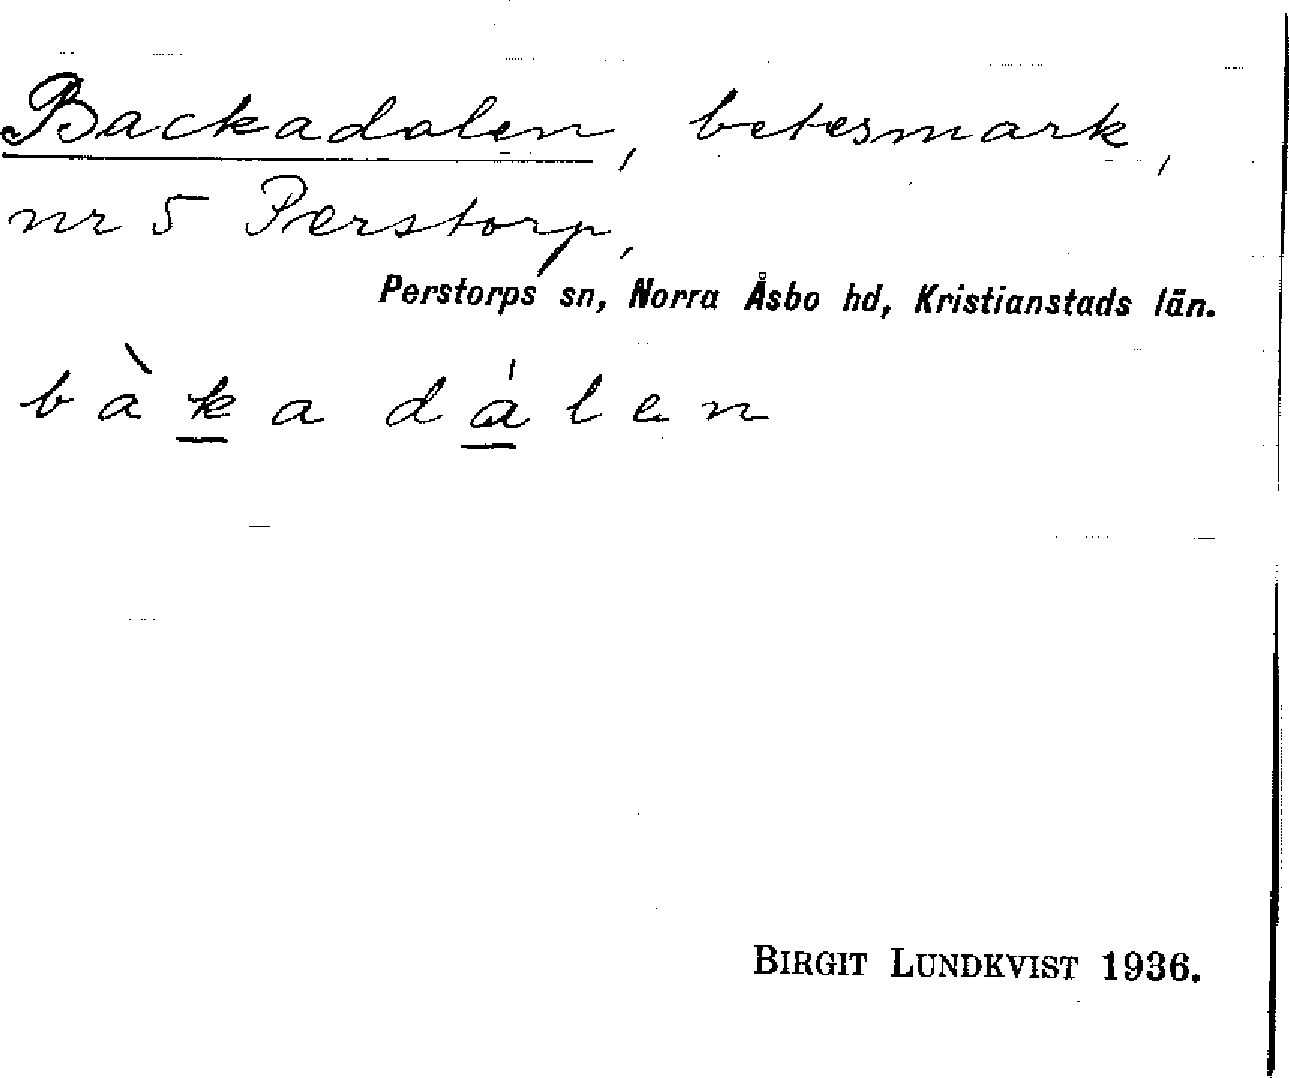 Backadalen, betesmark,
nr 5 Perstorp,
Perstorps sn, Norra Åsbo hd, Kristianstads län.
bàkadálen
BIRGIT LUNDKVIST 1936.